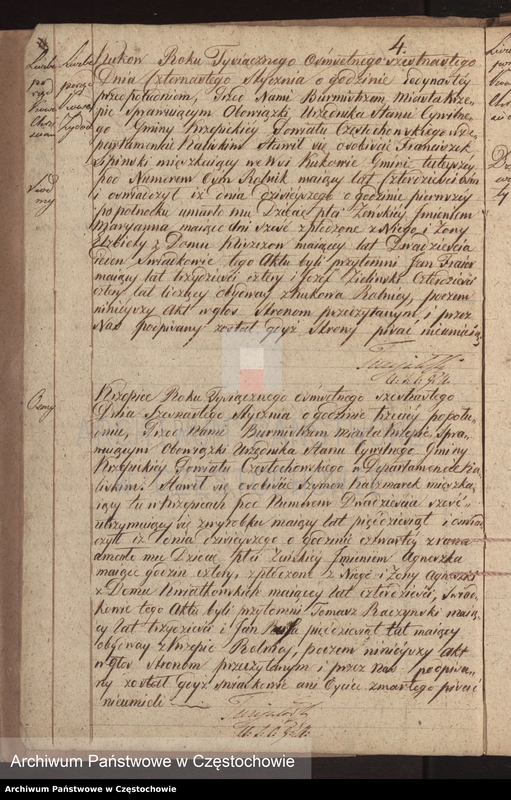 4.
Kukow Roku Tysiącznego Ośmsetnego szesnastego
Dnia Czternastego Stycznia o godzinie Jedynastey
przed południem, Przed Nami Burmistrzem Miasta Krze-
pic Sprawuiącym Obowiązki Urzędnika Stanu Cywilne-
go Gminy Krzepickiey Powiatu Częstochowskiego w De-
partamencie Kaliskim Stawił się osobiście Franciszek
Lipinski mieszkaiący we Wsi Kukowie Gminie tuteyszey
pod Numerem Rolnik maiący lat czterdzieści
i oswiadczył iż dnia dzisieyszego o godzinie pierwszey
po północku umarło mu Dziecię płci Żenskiey Imieniem
Maryanna maiące dni sześć spłodzone z Niego i Żony
Elzbiety z Domu maiącey lat Dwadzieścia
ieden Swiadkowie tego Aktu byli przytomni Jan
maiący lat trzydzieści cztery i Jozef Zielinski Czterdzieści
cztery lat liczący obydway z Kukowa Rolnicy, poczem
ninieyszy akt w głos Stronom przeczytanym, i przez
Nas podpisany został gdyż Strony pisać nieumieią
Osmy
Krzepice Roku Tysiącznego ośmsetnego szesnastego
Dnia Szesnastego Stycznia o godzinie trzeciey popołu-
dniu, Przed Nami Burmistrzem Miasta Krzepic, Spra-
wuiącym Obowiązki Urzędnika Stanu Cywilnego Gminy
Krzepickiey Powiatu Częstochowskiego w Departamencie Ka-
liskim. Stawił się osobiście Szymon Kaczmarek mieszka-
iący tu w Krzepicach pod Numerem Dwadzieścia sześć
utrzymuiący się z wyrobku maiący lat pięćdziesiąt i oswiad-
czył iż Dnia dzisieyszego o godzinie czwartey z rana
umarło mu Dziecię płci Żenskiey Imieniem Agnieszka
maiące godzin cztery, spłodzone z Niego i Żony Agnieszki
z Domu Kwiatkowskich maiącey lat czterdzieści, Swiad-
kowie tego Aktu byli przytomni Tomasz Raczynski maią-
cy lat trzydzieści i Jan pięćdziesiąt lat maiący
obydway z Krzepic Rolnicy, poczem ninieyszy akt
w głos Stronom przeczytanym i przez Nas podpisa-
ny został gdyż swiadkowie ani Oyciec zmarłego pisać
nieumieli
Archiwum Państwowe w Częstochowie
Archiwum Państwowe w Częstochowie